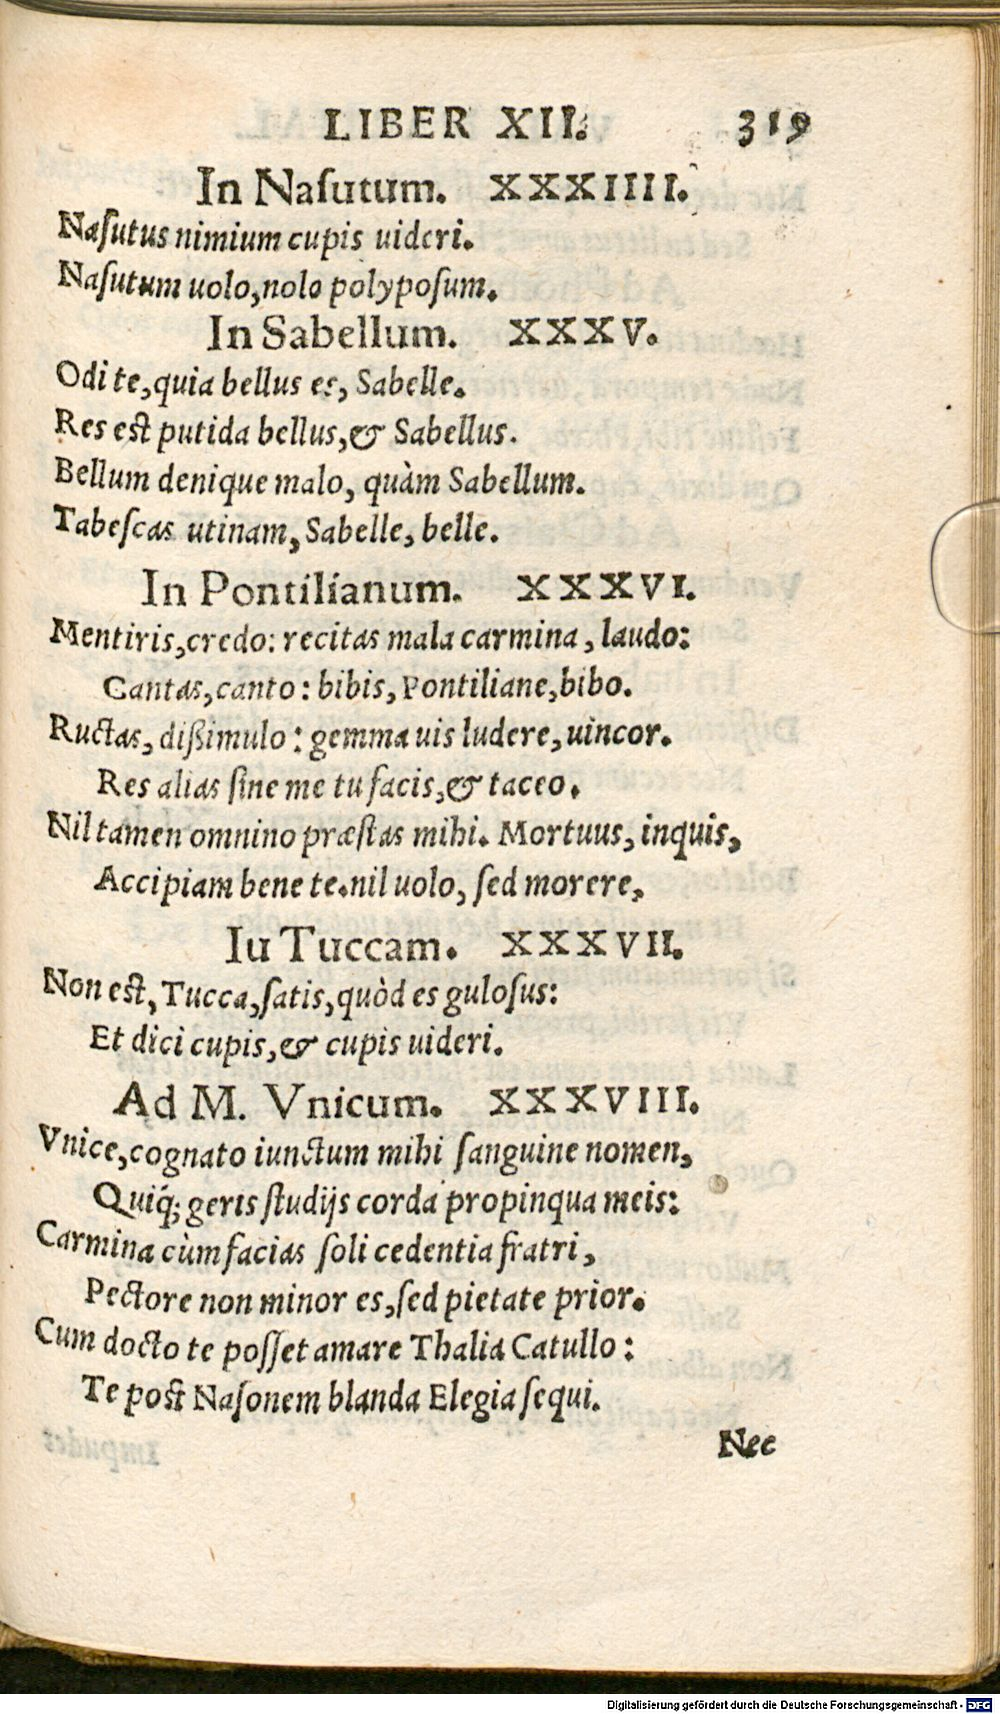 LIBER XII. 319
In Naſutum. XXXIIII.
Naſutus nimium cupis uideri.
Naſutum uolo, nolo polyposum.
In Sabellum. XXXV.
Odi te, quia bellus es, Sabelle.
Res est putida bellus, & Sabellus.
Bellum denique malo, quàm Sabellum.
Tabeſcas utinam, Sabelle, belle.
In Pontilianum. XXXVI.
Mentiris, credo: recitas mala carmina, laudo:
Cantas, canto: bibis, Pontiliane, bibo.
Ructas, dißimulo: gemma uis ludere, uincor.
Res alias ſine me tu facis, & taceo.
Nil tamen omnino præſtas mihi. Mortuus, inquis,
Accipiam bene te. nil uolo, ſed morere,
Iu Tuccam. XXXVII.
Non eſt, Tucca, ſatis, quòd es guloſus:
Et dici cupis, & cupis uideri.
Ad M. Vnicum. XXXVIII.
Vnice, cognato iunctum mihi ſanguine nomen,
Quiq́; geris ſtudijs corda propinqua meis:
Carmina cùm facias ſoli cedentia fratri,
Pectore non minor es, ſed pietate prior.
Cum docto te poſſet amare Thalia Catullo:
Te poſt Naſonem blanda Elegia ſequi.
Nec
Digitalisierung gefördert durch die Deutsche Forschungsgemeinschaft - DFG